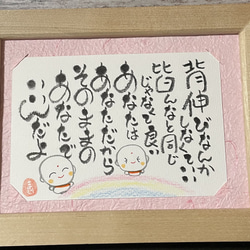 背伸びなんか
しなくていい
皆んなと同じ
じゃなくて良い
あなたは
あなただから
そのままの
あなたで
いいんだよ